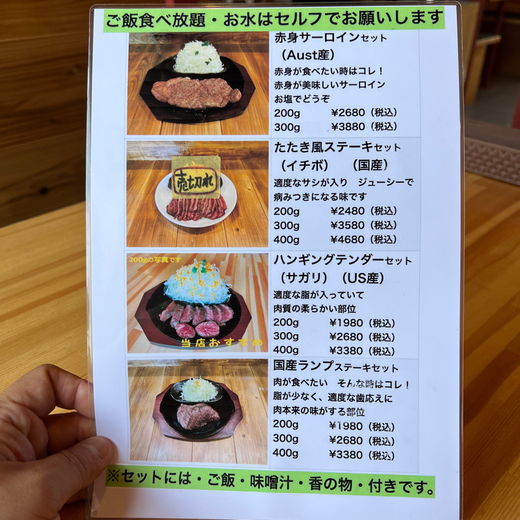 ご飯食べ放題・お水はセルフでお願いします
赤身サーロインセット
（Aust産）
赤身が食べたい時はコレ！
赤身が美味しいサーロイン
お塩でどうぞ
200g ¥2680（税込）
300g ¥3880（税込）
売切れ
たたき風ステーキセット
（イチボ） （国産）
適度なサシが入り ジューシーで
病みつきになる味です
200g ¥2480（税込）
300g ¥3580（税込）
400g ¥4680（税込）
200gの写真です
当店おすすめ
ハンギングテンダーセット
（サガリ）（US産）
適度な脂が入っていて
肉質の柔らかい部位
200g ¥1980（税込）
300g ¥2680（税込）
400g ¥3380（税込）
国産ランプステーキセット
肉が食べたい そんな時はコレ！
脂が少なく、適度な歯応えに
肉本来の味がする部位
200g ¥1980（税込）
300g ¥2680（税込）
400g ¥3380（税込）
※セットには・ご飯・味噌汁・香の物・付きです。